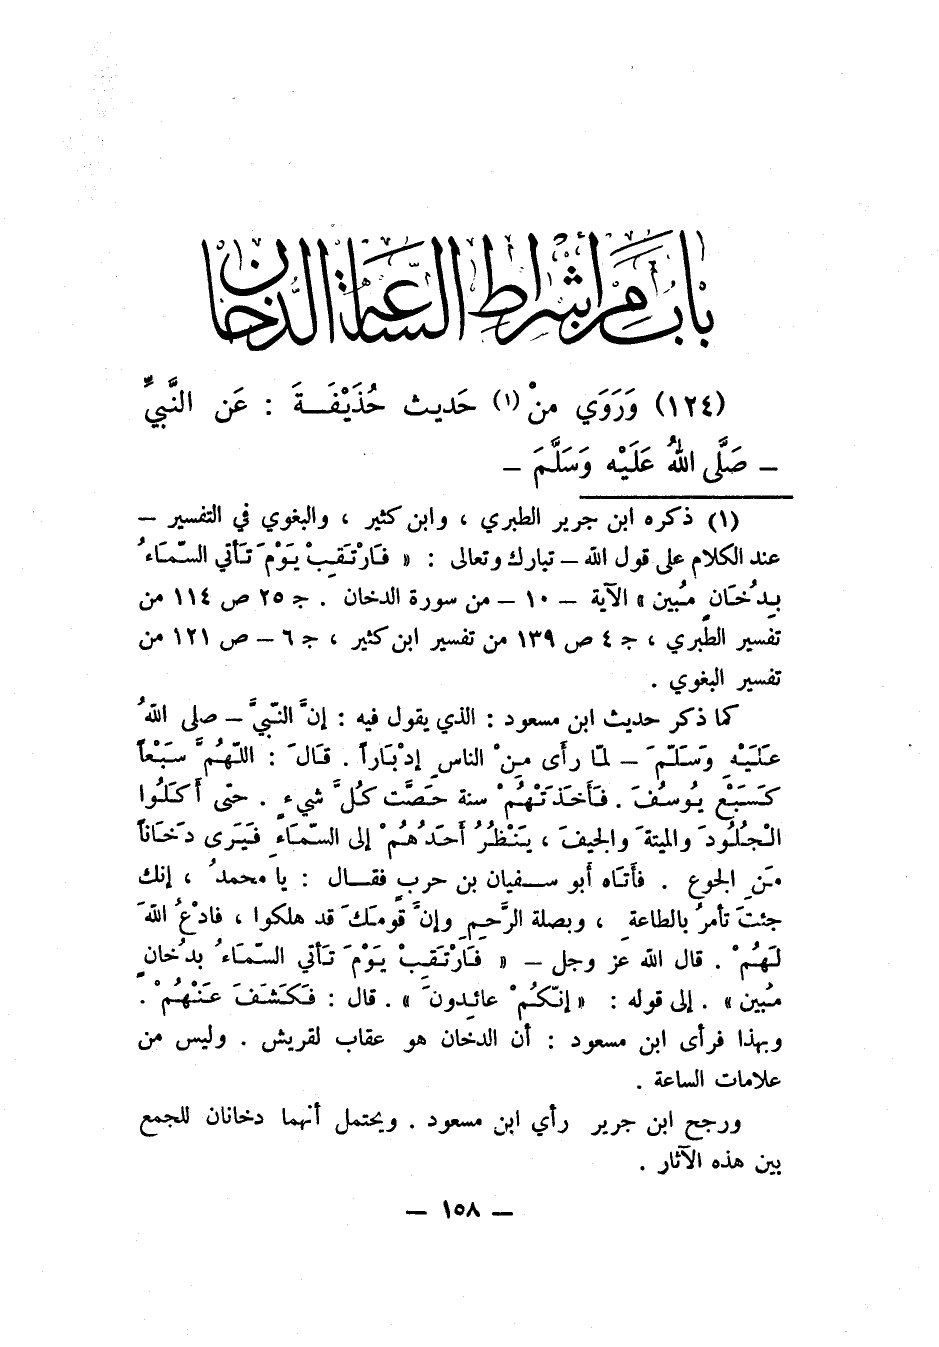 باب من أشراط الساعة الدخان
(١٢٤) وَرَوَي منْ (١) حَديث حُذَيْفَةَ : عَن النَّبيِّ
– صَلَّى اللهُ عَلَيْه وَسَلَّمَ –
(١) ذكره ابن جرير الطبري ، وابن كثير ، والبغوي في التفسير –
عند الكلام على قول الله – تبارك وتعالى : « فَارْتَقِبْ يَوْمَ تَأتي السّمَاءُ
بِدُخَانٍ مُبين » الآية – ١٠ – من سورة الدخان . جـ ٢٥ ص ١١٤ من
تفسير الطّبري ، جـ ٤ ص ١٣٩ من تفسير ابن كثير ، جـ ٦ – ص ١٢١ من
تفسير البغوي .
كما ذكر حديث ابن مسعود : الذي يقول فيه : إنَّ النّبيَّ – صلى اللهُ
عَلَيْهِ وَسَلّمَ – لمّا رأى مِنْ الناسِ إدْبَاراً . قَالَ : اللّهُمَّ سَبْعاً
كَسَبْعِ يُوسُفَ . فَأخَذَتْهُمْ سنة حَصَّت كُلَّ شيءٍ . حتّى أكَلُوا
الْجُلُودَ والميتةَ والجيفَ ، يَنْظُرُ أحَدُهُمْ إلى السّمَاءِ فَيَرى دخَاناً
مَن الجوعِ . فأتَاه أبو سفيان بن حربٍ فقال : يا محمدُ ، إنك
جئتَ تأمرُ بالطاعةِ ، وبصلة الرَّحِمِ وإنَّ قومَكَ قد هلكوا ، فادْعُ اللهَ
لَهُمْ . قال الله عز وجل – « فَارْتَقِبْ يَوْمَ تَأتي السّمَاءُ بدُخانٍ
مُبين » . إلى قوله : « إنّكُمْ عائِدونَ » . قال : فَكَشَفَ عَنْهُمْ .
وبهذا فرأى ابن مسعود : أن الدخان هو عقاب لقريش . وليس من
علامات الساعة .
ورجح ابن جرير رأي ابن مسعود . ويحتمل أنهما دخانان للجمع
بين هذه الآثار .
– ١٥٨ –